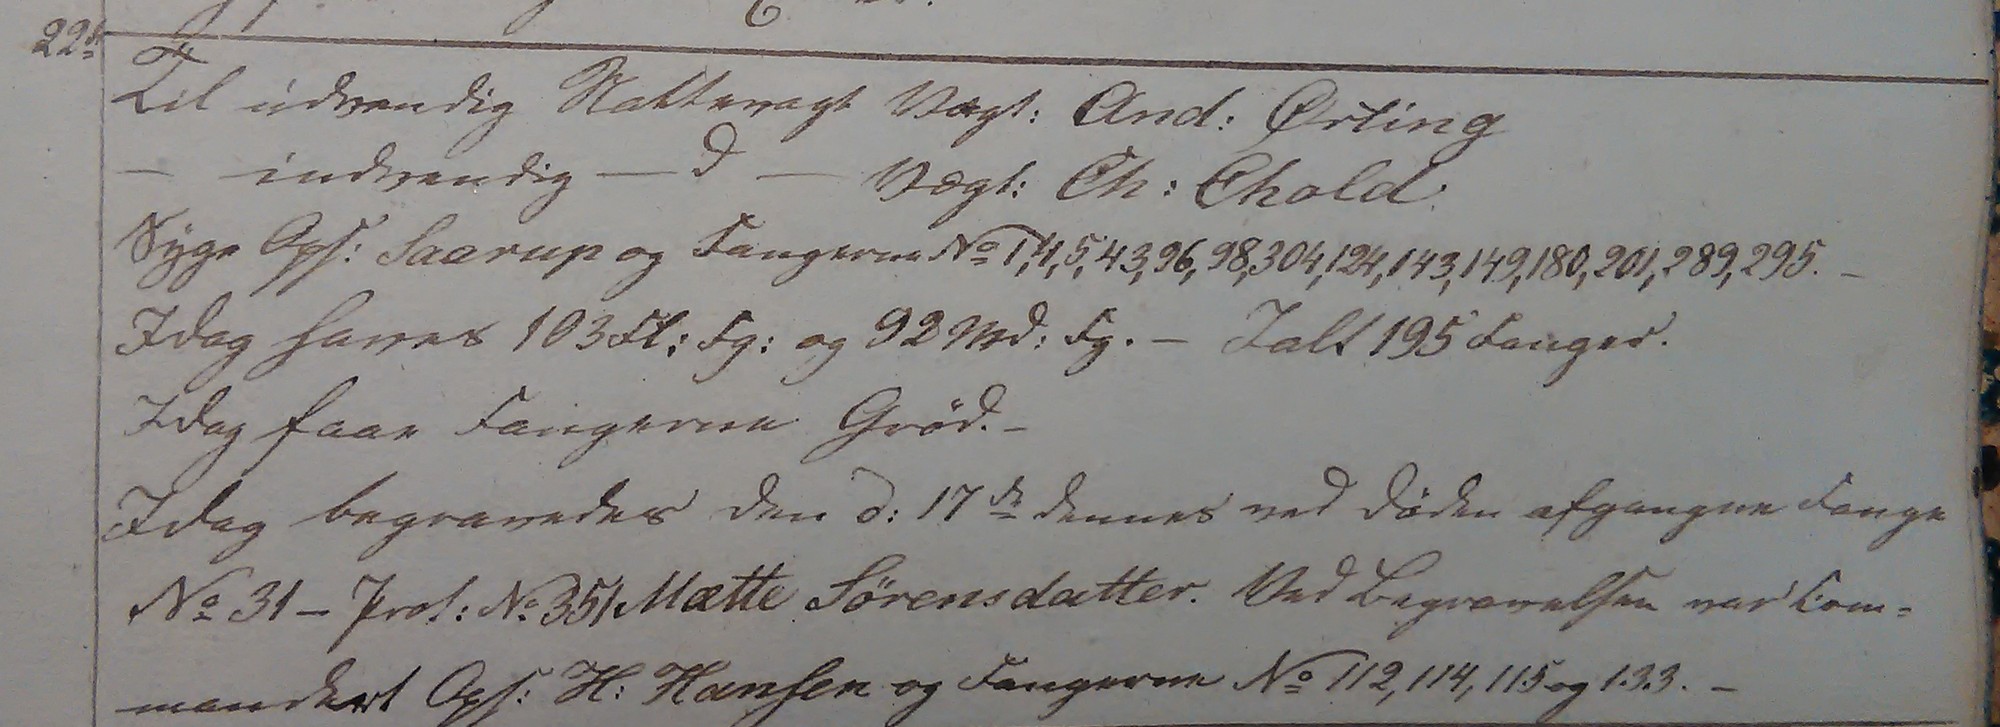 22de
Til udvendig Nattevagt Vægt: And: Ørting
— indvendig — d — Vægt: Ch: Chold.
Syge Ops: Saarup og Fangerne No 1, 4, 5, 43, 96, 98, 304, 124, 143, 149, 180, 201, 289, 295. —
Idag haves 103 Fl: Fg: og 92 Md: Fg. — Ialt 195 Fanger.
Idag faae Fangerne Gröd. —
Idag begravedes den d: 17de dennes ved Döden afgangne Fange
No 31 — Prot: No 351 Mætte Sörensdatter. Ved Begravelsen var kom-
mandert Ops: H: Hansen og Fangerne No 112, 114, 115 og 133. —